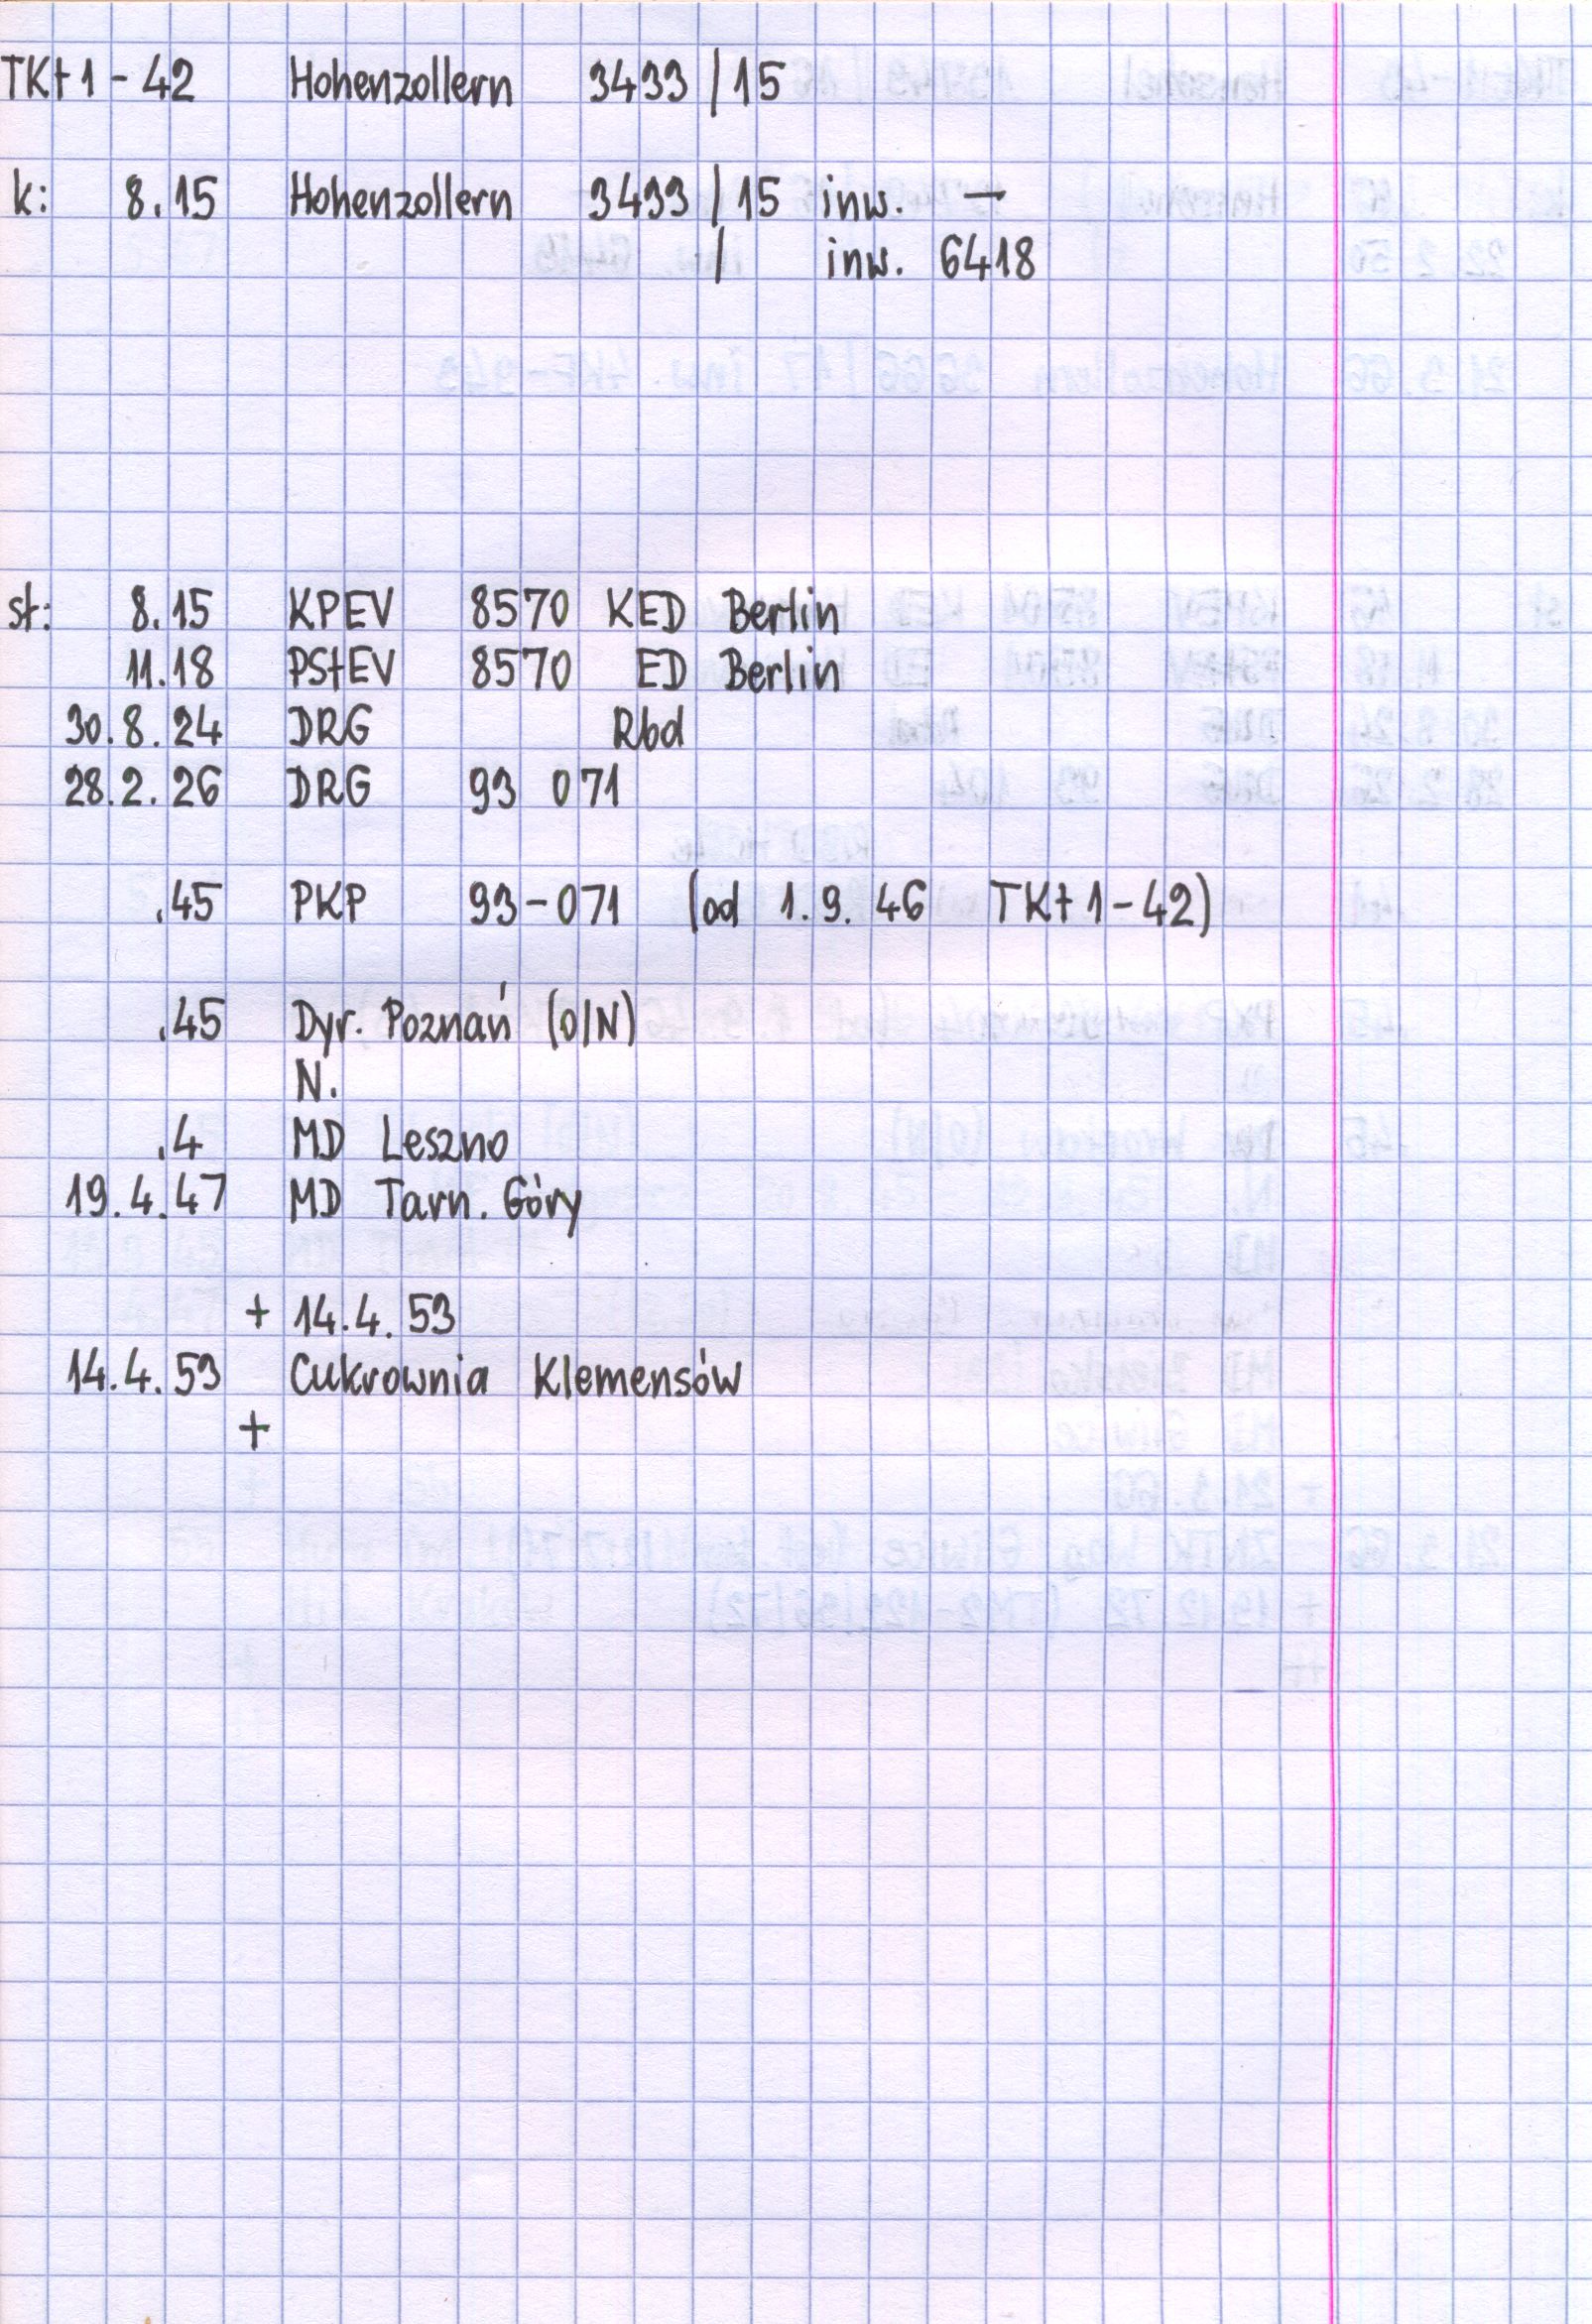 TKt1-42 Hohenzollern 3433/15
k: 8.15 Hohenzollern 3433/15 inw. —
/ inw. 6418
st: 8.15 KPEV 8570 KED Berlin
11.18 PStEV 8570 ED Berlin
30.8.24 DRG Rbd
28.2.26 DRG 93 071
.45 PKP 93-071 (od 1.9.46 TKt1-42)
.45 Dyr. Poznań (O/N)
N.
.4 MD Leszno
19.4.47 MD Tarn. Góry
+ 14.4.53
14.4.53 Cukrownia Klemensów
+